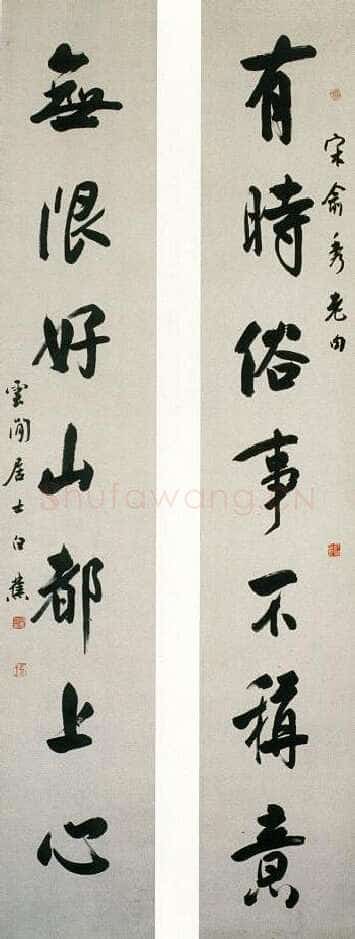 宋俞秀老句
有時俗事不稱意
無限好山都上心
雲間居士白蕉
Shufawang.CN